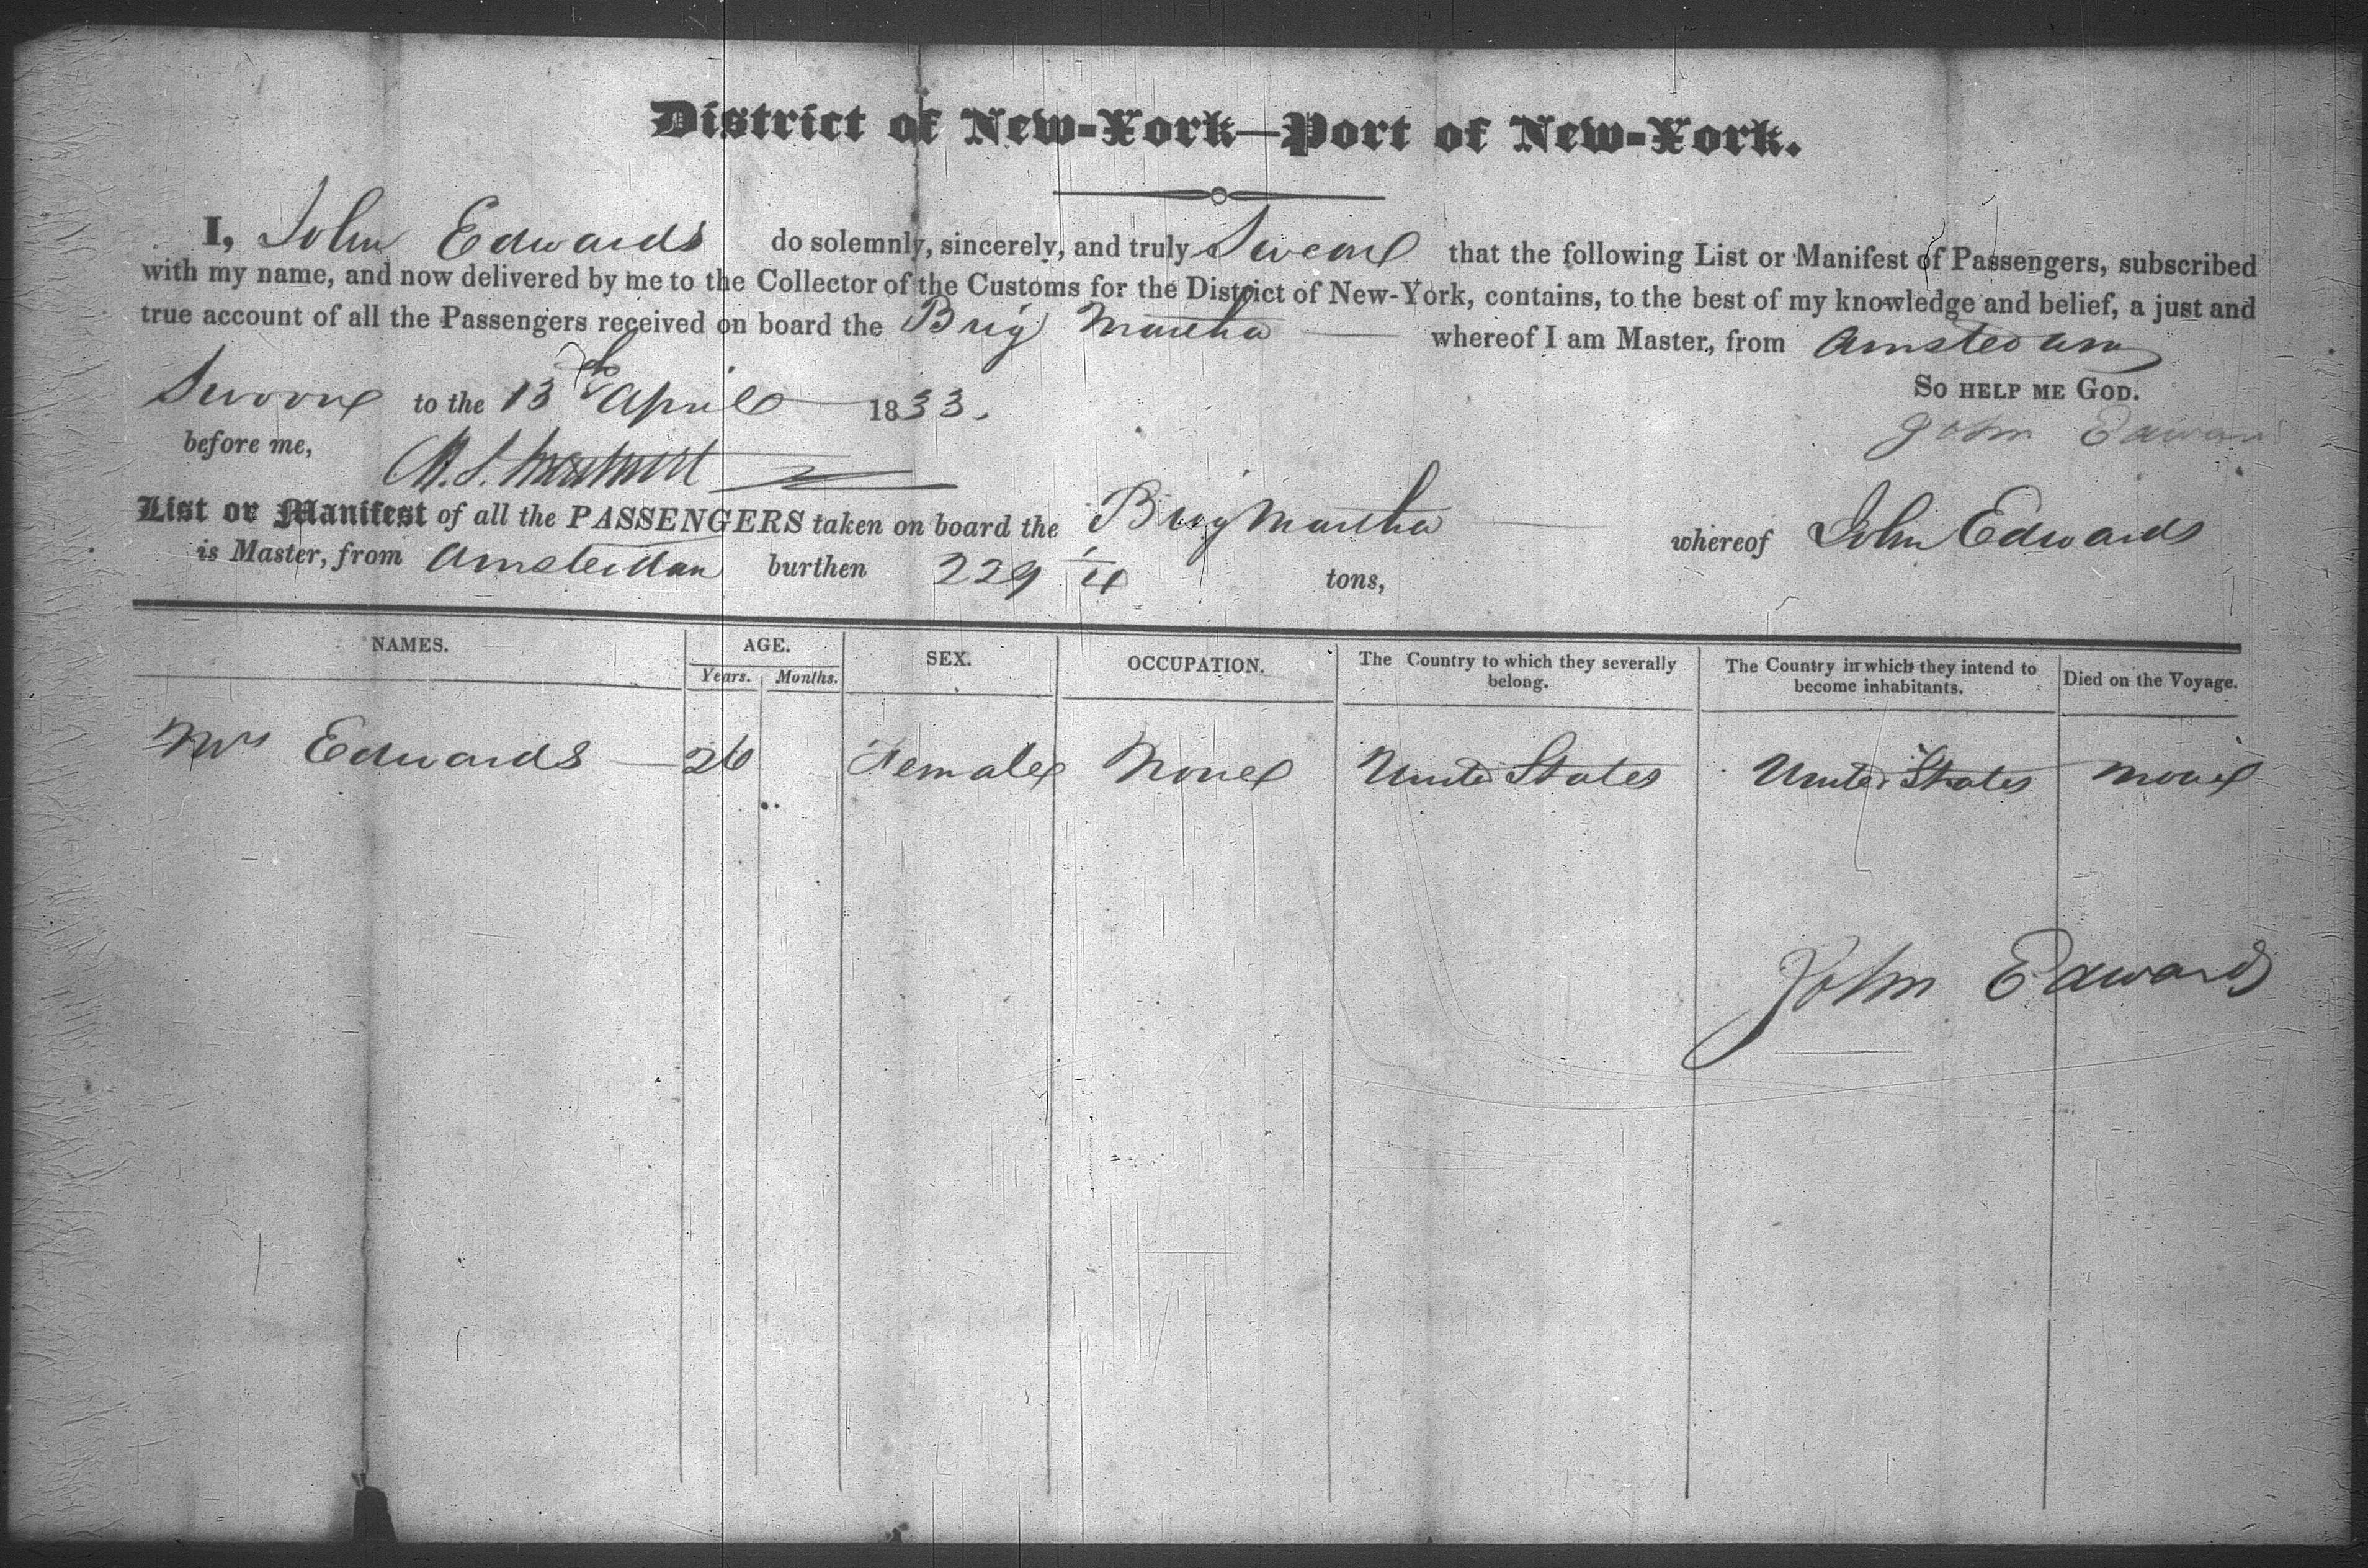 District of New-York—Port of New-York.
I, John Edwards do solemnly, sincerely, and truly Swear that the following List or Manifest of Passengers, subscribed
with my name, and now delivered by me to the Collector of the Customs for the District of New-York, contains, to the best of my knowledge and belief, a just and
true account of all the Passengers received on board the Brig Martha whereof I am Master, from Amstedam
Sworne to the 13th April 1833.
So help me God.
before me,
John Edwards
List or Manifest of all the PASSENGERS taken on board the Brig Martha whereof John Edwards
is Master, from Amsterdam burthen 229 tons,
NAMES. AGE. SEX. OCCUPATION. The Country to which they severally belong. The Country in which they intend to become inhabitants. Died on the Voyage.
Years. Months.
Mrs Edwards 26 Female None United States United States None
John Edwards